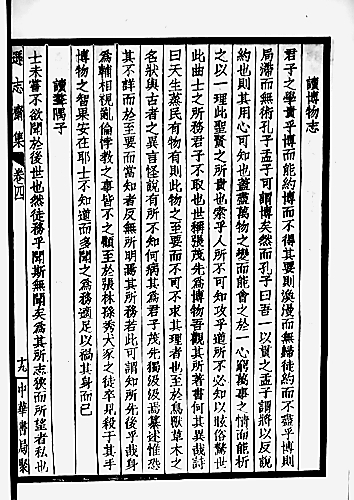 讀博物志
君子之學貴乎博而能約博而不得其要則渙漫而無歸徒約而不盡乎博則
局滯而無術孔子孟子可謂博矣然而孔子曰吾一以貫之孟子謂將以反說
約也則其用心可知也蓋盡萬物之變而能會之於一心窮萬事之情而能析
之以一理此聖賢之所貴也索乎人所不可知攻乎道所不必知以眩俗驚世
此曲士之所務君子不取也世稱張茂先為博物吾觀其所著書何其異哉詩
曰天生蒸民有物有則此物之至要而不可不求其理者也至於鳥獸草木之
名狀與古者之異言怪說有所不知何病其為君子茂先獨級級焉纂述惟恐
其不詳而於至要而當知者反無所明焉其所務若此可謂知所先後乎哉身
為輔相視亂倫悖教之事皆不之顧至於張林孫秀犬豕之徒卒見殺于其手
博物之智果安在耶士不知道而多聞之為務適足以禍其身而已
讀聱隅子
士未嘗不欲聞於後世也然徒務乎聞斯無聞矣為其所志狹而所望者私也
遜志齋集 卷四
十九 中華書局聚